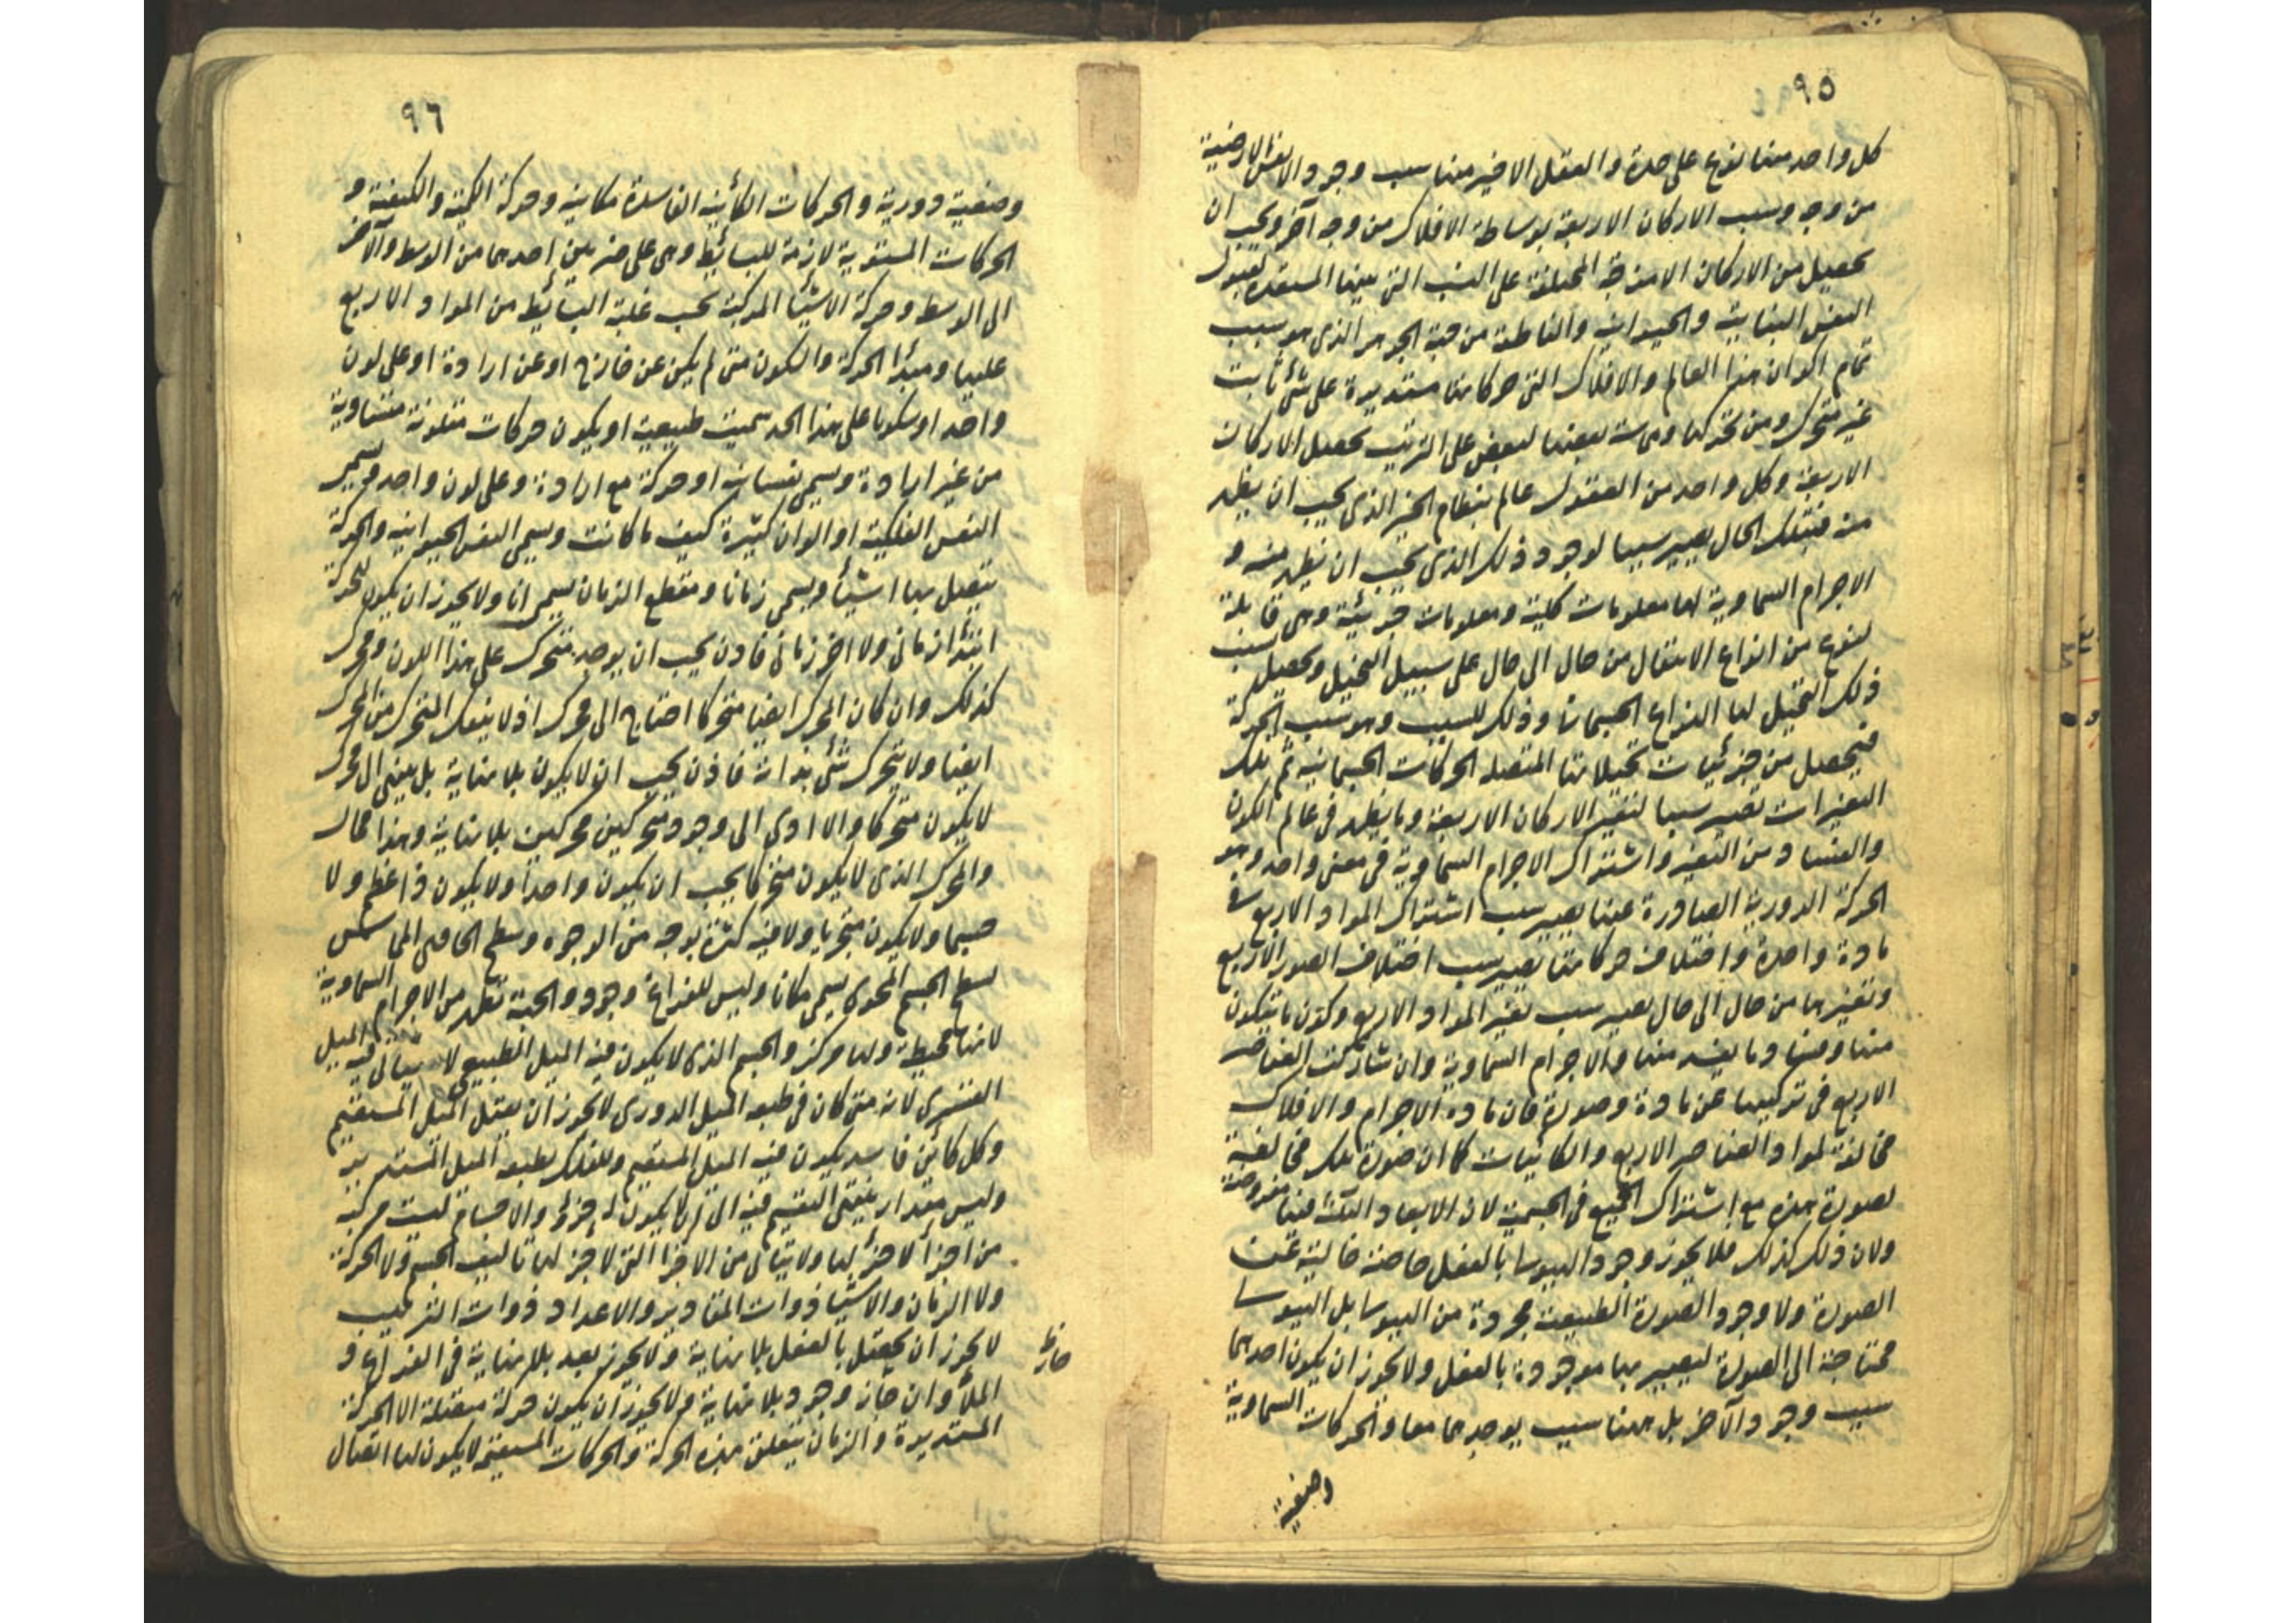 ٩٥
كل واحد منها نوع على حدة والعقل الاخير منها سبب وجود الانفس الارضية
من وجه وسبب الاركان الاربعة بوساطة الافلاك من وجه آخر ويجب ان
يحصل من الاركان الامزجة المختلفة على النسب التى بينها المستعدة لقبول
النفس النباتية والحيوانية والناطقة من جهة الجوهر الذى هو سبب
تمام اكوان هذا العالم والافلاك التى حركاتها مستديرة على شئ ثابت
غير متحرك ومن تحركها ومماسة بعضها لبعض على الترتيب يحصل الاركان
الاربعة وكل واحد من العقول عالم بنظام الخير الذى يجب ان يظهر
منه فبتلك الحال يصير سببا لوجود ذلك الذى يجب ان يظهر منه و
الاجرام السماوية لها معلومات كلية ومعلومات جزئية وهى قابلة
لنوع من انواع الانتقال من حال الى حال على سبيل التخيل ويحصل بسبب
ذلك التخيل لها التخيل الجسمانى وذلك السبب وهو سبب الحركة
فيحصل من جزئيات تخيلاتها المتصلة الحركات الجسمانية ثم تلك
التغيرات تصير سببا لتغير الاركان الاربعة وما يظهر فى عالم الكون
والفساد من التغير واشتراك الاجرام السماوية فى معنى واحد وهو
الحركة الدورية الصادرة عنها يصير سبب اشتراك المواد الاربع فى
مادة واحدة واختلاف حركاتها يصير سبب اختلاف الصور الاربع
وتغيرها من حال الى حال يصير سبب تغير المواد الاربع وكون ما يتكون
منها وفساد ما يفسد منها والاجرام السماوية وان شاركت العناصر
الاربع فى تركيبها عن مادة وصورة فان مادة الاجرام والافلاك
مخالفة لمواد العناصر الاربع والكائنات كما ان صورة تلك مخالفة
لصورة هذه مع اشتراك الجميع فى الجسمية لان الابعاد الثلثة فيها مفروضة
ولان ذلك كذلك فلا يجوز وجود الهيولى بالفعل خالية عن
الصورة ولا وجود الصورة الطبيعية مجردة من الهيولى بل الهيولى
محتاجة الى الصورة ليصير بها موجودة بالفعل ولا يجوز ان يكون احدهما
سبب وجود الآخر بل ههنا سبب يوجدهما معا والحركات السماوية
وضعية
٩٦
وضعية دورية والحركات الكائنة الفاسدة مكانية وحركة الكمية والكيفية و
الحركات المستوية لازمة للبسائط وهى على ضربين احدهما من الوسط والآخر
الى الوسط وحركة الاشيا المركبة بحسب غلبة البسائط من المواد الاربع
عليها ومبدأ الحركة والسكون متى لم يكن عن خارج او عن ارادة او على لون
واحد او سكونا على هذا الحد سميت طبيعية او يكون حركات متلونة متساوية
من غير ارادة ويسمى نفسا نباتية او حركة مع ارادة وعلى لون واحد ويسمى
النفس الفلكية او الوان كثيرة كيف ما كانت ويسمى النفس الحيوانية والحركة
يتصل بها اشيأ ويسمى زمانا ومقطع الزمان يسمى انا ولا يجوز ان يكون للحركة
ابتدأ زمانى ولا آخر زمانى فاذن يجب ان يوجد متحرك على هذا اللون ومحرك
كذلك وان كان المحرك ايضا متحركا احتاج الى محرك اذ لا ينفك المتحرك من المحرك
ايضا ولا يتحرك شئ بذاته فاذن يجب ان لا يكون بلا نهاية بل ينتهى الى محرك
لا يكون متحركا والا ادى الى وجود متحركين محركين بلا نهاية وهذا محال
والمحرك الذى لا يكون متحركا يجب ان يكون واحدا ولا يكون ذا عظم ولا
جسما ولا يكون متجزيا ولا فيه كثرة بوجه من الوجوه وسطح الحاوى المماس
لسطح الجسم المحوى يسمى مكانا وليس للفراغ وجود والجهة تظهر من الاجرام السماوية
لانها محيطة ولها مركز والجسم الذى لا يكون فيه الميل الطبيعى لا يتأتى فيه الميل
القسرى لانه متى كان فى طبعه الميل الدورى لا يجوز ان يقبل الميل المستقيم
وكل كائن فاسد يكون فيه الميل المستقيم وللفلك بطبعه الميل المستدير
وليس مقدار ينتهى القسم فيه الى ما لا يكون له جزؤ والاجسام ليست مركبة
من اجزأ لا جزأ لها ولا يتأتى من الاجزا التى لا جز لها تاليف الجسم ولا الحركة
ولا الزمان والاشيا ذوات المقادير والاعداد ذوات الترتيب
لا يجوز ان يحصل بالفعل بلا نهاية ولا يجوز بعد بلا نهاية فى الفراغ و
الملأ وان جاز وجود بلا نهاية ولا يجوز ان يكون حركة متصلة الا الحركة
المستديرة والزمان يتعلق بهذه الحركة والحركات المستقيمة لا يكون لها اتصال